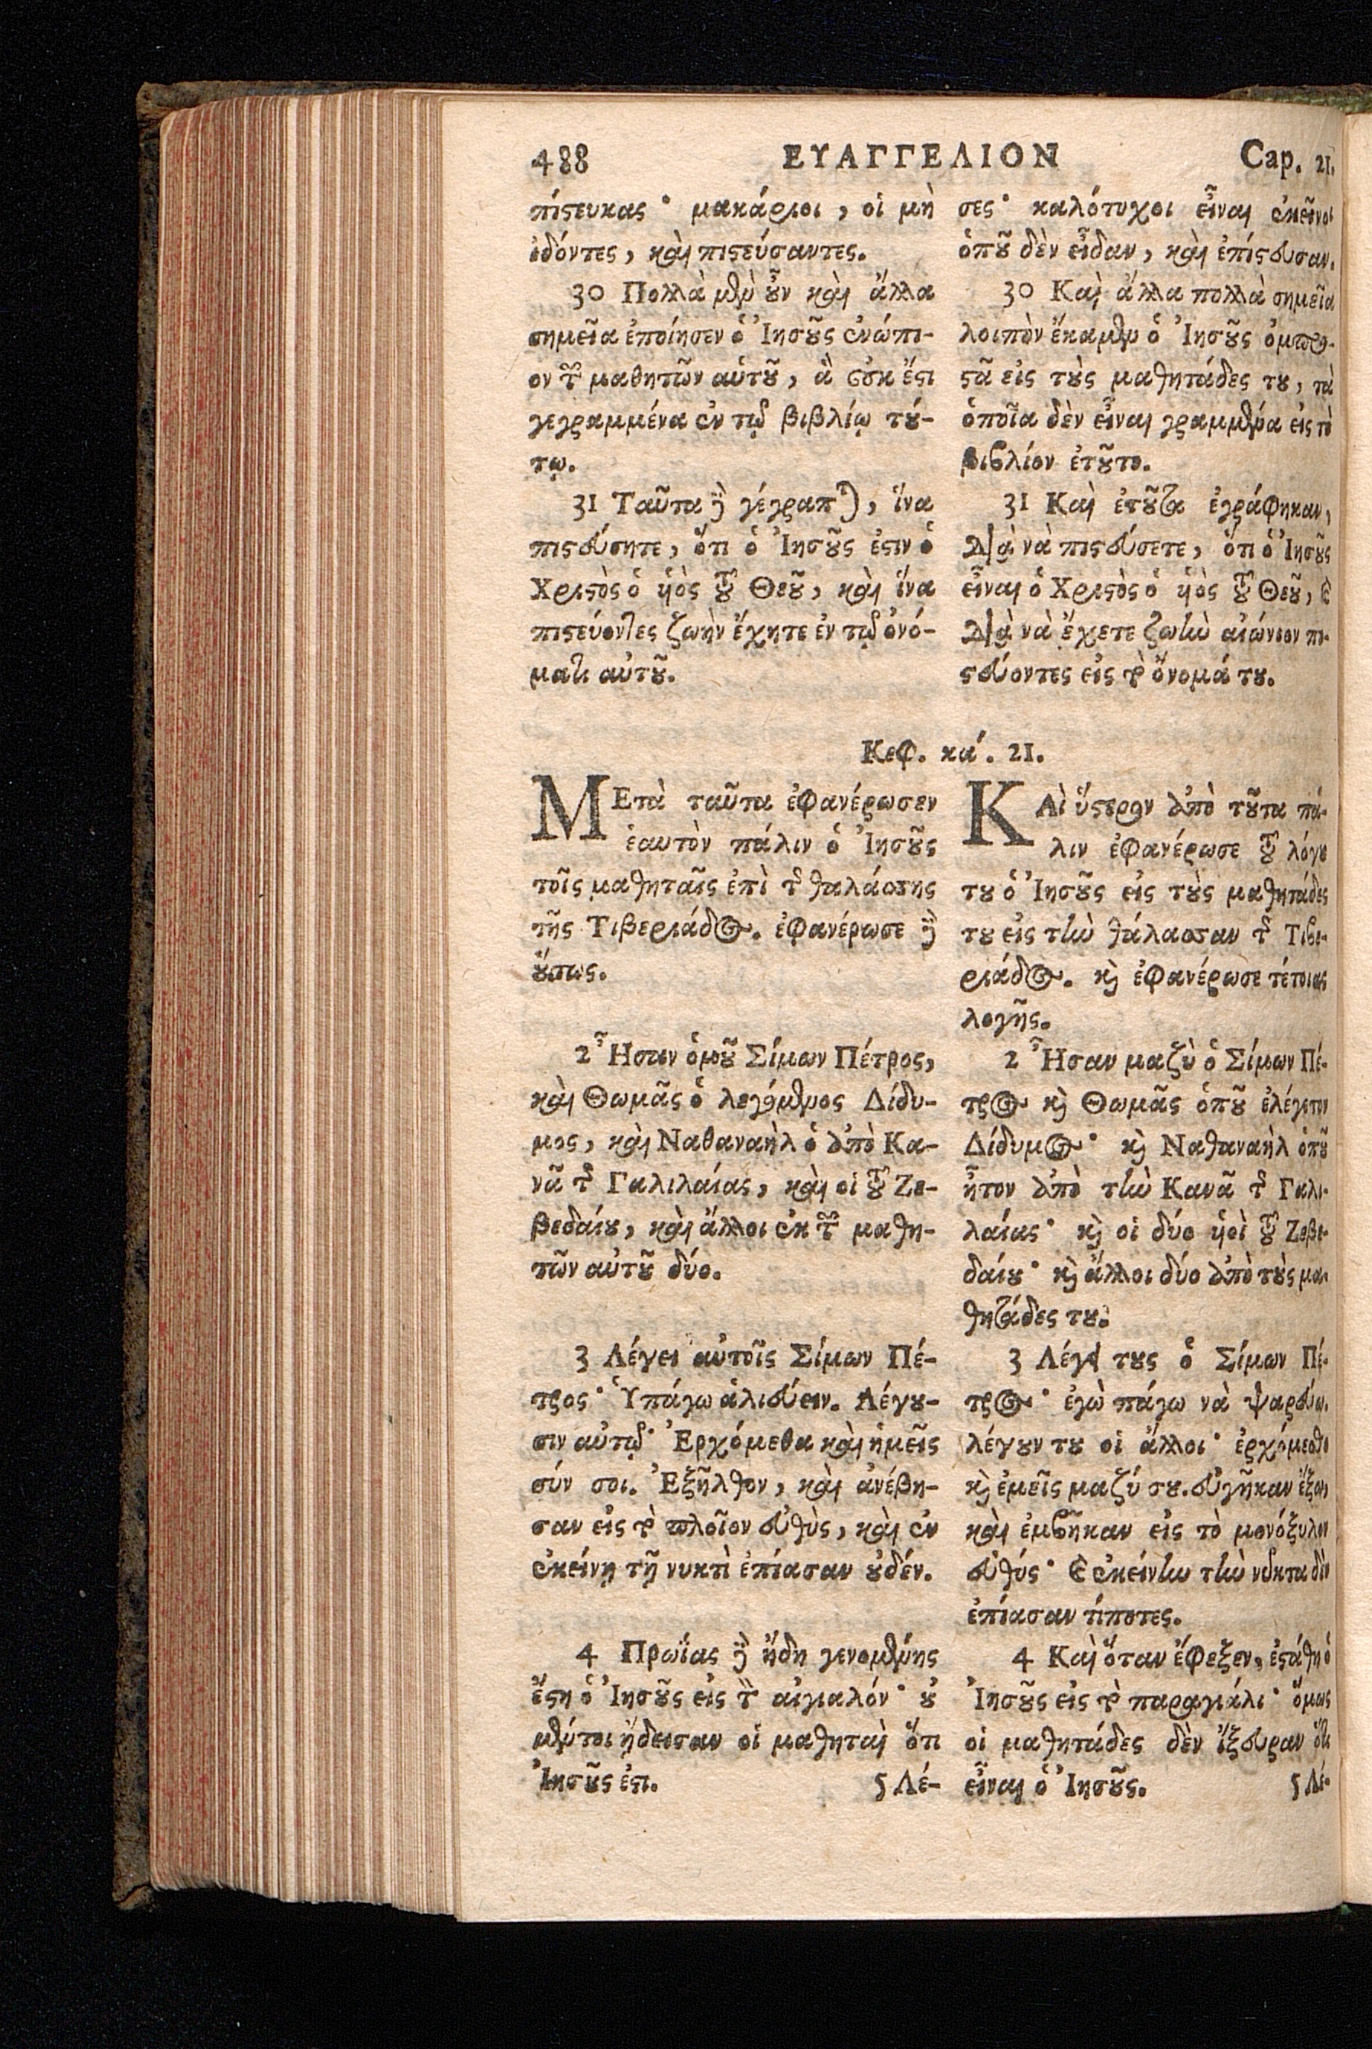 488 ΕΥΑΓΓΕΛΙΟΝ Cap. 21.
πίστευκας· μακάριοι, οἱ μὴ
ἰδόντες, καὶ πιστεύσαντες.
30 Πολλὰ μὲν οὖν καὶ ἄλλα
σημεῖα ἐποίησεν ὁ Ἰησοῦς ἐνώπι-
ον τῶν μαθητῶν αὑτοῦ, ἃ οὐκ ἔστι
γεγραμμένα ἐν τῷ βιβλίῳ τού-
τῳ.
31 Ταῦτα δὲ γέγραπται, ἵνα
πιστεύσητε, ὅτι ὁ Ἰησοῦς ἐστιν ὁ
Χριστὸς ὁ υἱὸς τοῦ Θεοῦ, καὶ ἵνα
πιστεύοντες ζωὴν ἔχητε ἐν τῷ ὀνό-
ματι αὐτοῦ.
σες· καλότυχοι εἶναι ἐκεῖνοι
ὁποῦ δὲν εἶδαν, καὶ ἐπίστευσαν.
30 Καὶ ἄλλα πολλὰ σημεῖα
λοιπὸν ἔκαμεν ὁ Ἰησοῦς ὀμπρο-
στᾶ εἰς τοὺς μαθητάδες του, τὰ
ὁποῖα δὲν εἶναι γραμμένα εἰς τὸ
βιβλίον ἐτοῦτο.
31 Καὶ ἐτοῦτα ἐγράφηκαν,
διὰ νὰ πιστεύσετε, ὅτι ὁ Ἰησοῦς
εἶναι ὁ Χριστὸς ὁ υἱὸς τοῦ Θεοῦ, καὶ
διὰ νὰ ἔχετε ζωὴν αἰώνιον πι-
στεύοντες εἰς τὸ ὄνομά του.
Κεφ. κα΄. 21.
ΜΕτὰ ταῦτα ἐφανέρωσεν
ἑαυτὸν πάλιν ὁ Ἰησοῦς
τοῖς μαθηταῖς ἐπὶ τῆς θαλάσσης
τῆς Τιβεριάδος. ἐφανέρωσε δὲ
οὕτως.
2 Ἦσαν ὁμοῦ Σίμων Πέτρος,
καὶ Θωμᾶς ὁ λεγόμενος Δίδυ-
μος, καὶ Ναθαναὴλ ὁ ἀπὸ Κα-
νᾶ τῆς Γαλιλαίας, καὶ οἱ τοῦ Ζε-
βεδαίου, καὶ ἄλλοι ἐκ τῶν μαθη-
τῶν αὐτοῦ δύο.
3 Λέγει αὐτοῖς Σίμων Πέ-
τρος· Ὑπάγω ἁλιεύειν. Λέγου-
σιν αὐτῷ· Ἐρχόμεθα καὶ ἡμεῖς
σύν σοι. Ἐξῆλθον, καὶ ἀνέβη-
σαν εἰς τὸ πλοῖον εὐθὺς, καὶ ἐν
ἐκείνῃ τῇ νυκτὶ ἐπίασαν οὐδέν.
4 Πρωΐας δὲ ἤδη γενομένης
ἔστη ὁ Ἰησοῦς εἰς τὸν αἰγιαλόν· οὐ
μέντοι ᾔδεισαν οἱ μαθηταὶ ὅτι
Ἰησοῦς ἐστι. 5 Λέ-
ΚΑὶ ὕστερον ἀπὸ τοῦτα πά-
λιν ἐφανέρωσε τοῦ λόγου
του ὁ Ἰησοῦς εἰς τοὺς μαθητάδες
του εἰς τὴν θάλασσαν τῆς Τιβε-
ριάδος. καὶ ἐφανέρωσε τέτοιας
λογῆς.
2 Ἦσαν μαζὺ ὁ Σίμων Πέ-
τρος καὶ Θωμᾶς ὁποῦ ἐλέγετον
Δίδυμος· καὶ Ναθαναὴλ ὁποῦ
ἦτον ἀπὸ τὴν Κανᾶ τῆς Γαλι-
λαίας· καὶ οἱ δύο υἱοὶ τοῦ Ζεβε-
δαίου· καὶ ἄλλοι δύο ἀπὸ τοὺς μα-
θητάδες του.
3 Λέγει τους ὁ Σίμων Πέ-
τρος· ἐγὼ πάγω νὰ ψαρεύω.
λέγουν του οἱ ἄλλοι· ἐρχόμεσθε
καὶ ἐμεῖς μαζύ σου. εὐγῆκαν ἔξω,
καὶ ἐμβῆκαν εἰς τὸ μονόξυλον
εὐθύς· καὶ ἐκείνην τὴν νύκτα δὲν
ἐπίασαν τίποτες.
4 Καὶ ὅταν ἔφεξεν, ἐστάθη ὁ
Ἰησοῦς εἰς τὸ παραγιάλι· ὅμως
οἱ μαθητάδες δὲν ἴξευραν ὅτι
εἶναι ὁ Ἰησοῦς. 5 Λέ-